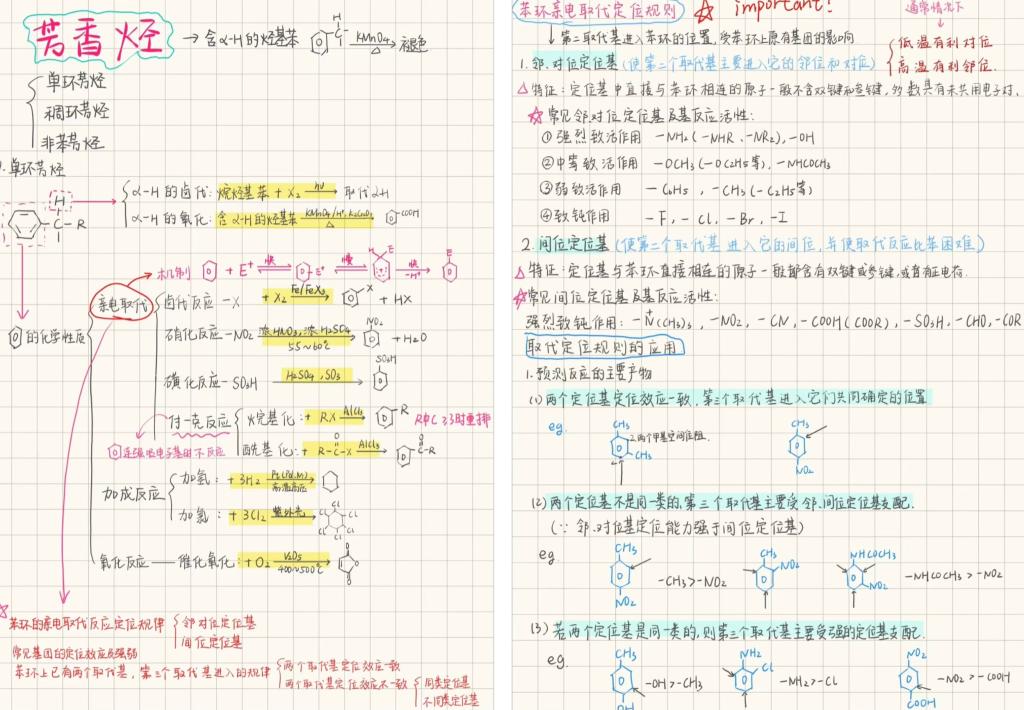 芳香烃
→ 含α-H的烃基苯 KMnO4 褪色
单环芳烃
稠环芳烃
非苯芳烃
单环芳烃
H
C-R
α-H的卤代: 烷烃基苯 + X2 hν 取代αH
α-H的氧化: 含α-H的烃基苯 KMnO4/H+, K2Cr2O7 △ COOH
机制 + E+ 快 E+ 慢 H E 快 -H+ E
亲电取代
卤代反应-X + X2 Fe/FeX3 X + HX
的化学性质
硝化反应-NO2 浓HNO3,浓H2SO4 55~60℃ NO2 + H2O
磺化反应-SO3H H2SO4,SO3 SO3H
付-克反应
烷基化: + RX AlCl3 R R中C≥3时重排
连强吸电子基时不反应
酰基化: + R-C-X O AlCl3 O C-R
加成反应
加氢: + 3H2 Pt(Pd.Ni) 高温高压
加氯: + 3Cl2 紫外光 Cl Cl Cl Cl Cl Cl
氧化反应 — 催化氧化: + O2 V2O5 400~500℃
苯环的亲电取代反应定位规律
邻对位定位基
间位定位基
常见基团的定位效应及强弱
苯环上已有两个取代基, 第三个取代基进入的规律
两个取代基定位效应一致
两个取代基定位效应不一致
同类定位基
不同类定位基
苯环亲电取代定位规则 important!
通常情况下
↓ 第二取代基进入苯环的位置, 受苯环上原有基团的影响
低温有利对位
高温有利邻位.
1. 邻.对位定位基 (使第二个取代基主要进入它的邻位和对位)
△ 特征: 定位基中直接与苯环相连的原子一般不含双键和叁键, 多数具有未共用电子对.
☆ 常见邻对位定位基及基反应活性:
① 强烈致活作用 -NH2(-NHR、-NR2), -OH
② 中等致活作用 -OCH3(-OC2H5等), -NHCOCH3
③ 弱致活作用 -C6H5 , -CH3(-C2H5等)
④ 致钝作用 -F, -Cl, -Br, -I
2. 间位定位基 (使第二个取代基进入它的间位, 并使取代反应比苯困难)
△ 特征: 定位基与苯环直接相连的原子一般都含有双键或叁键, 或直有正电荷.
☆ 常见间位定位基及基反应活性:
强烈致钝作用: -N+(CH3)3, -NO2, -CN, -COOH(COOR), -SO3H, -CHO, -COR
取代定位规则的应用
1. 预测反应的主要产物
(1) 两个定位基定位效应一致. 第三个取代基进入它们共同确定的位置
eg. CH3 CH3 2.两个甲基空间位阻. CH3 NO2
(2) 两个定位基不是同一类的, 第三个取代基主要受邻.间位定位基支配.
(∵ 邻.对位基定位能力强于间位定位基)
eg CH3 NO2 -CH3>-NO2 CH3 NO2 NHCOCH3 NO2 -NHCOCH3 > -NO2
(3) 若两个定位基是同一类的, 则第三个取代基主要受强的定位基支配.
eg. CH3 OH -OH>-CH3 NH2 Cl -NH2>-Cl NO2 COOH -NO2>-COOH